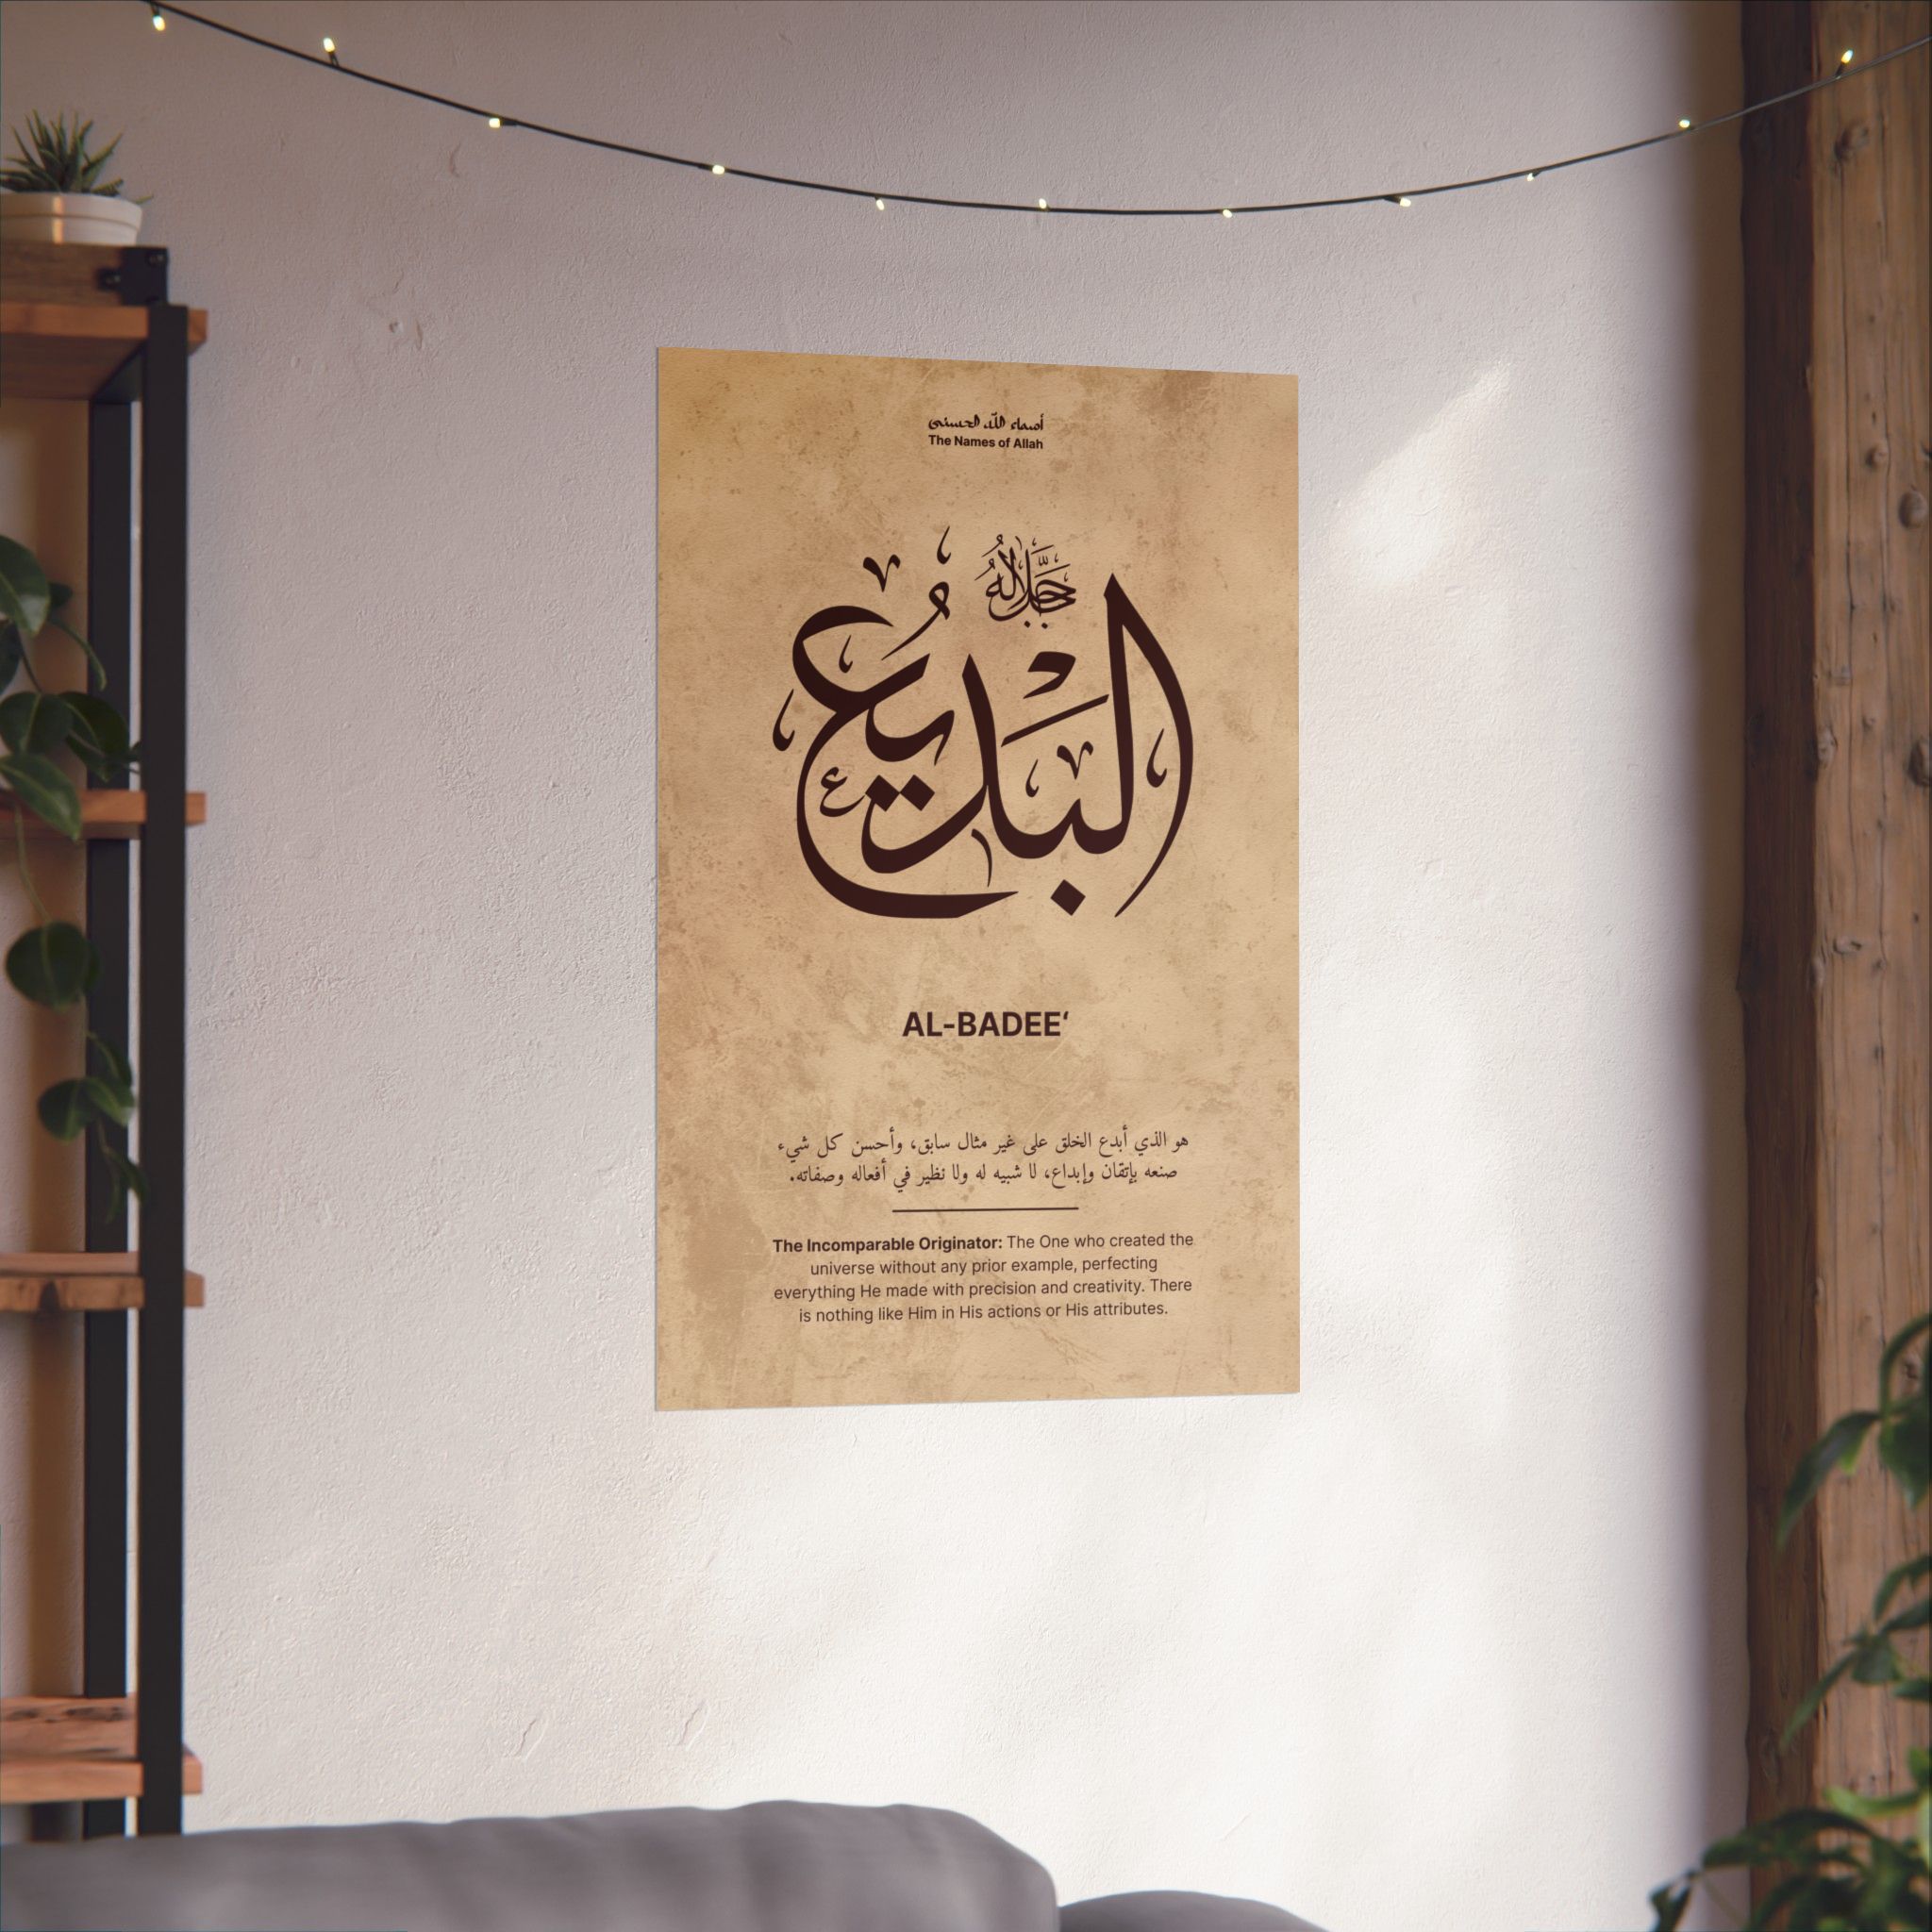 أسماء الله الحسنى
The Names of Allah
جَلَّ جَلَالُهُ
البَدِيعُ
AL-BADEE‘
هو الذي أبدع الخلق على غير مثال سابق، وأحسن كل شيء
صنعه بإتقان وإبداع، لا شبيه له ولا نظير في أفعاله وصفاته.
The Incomparable Originator: The One who created the
universe without any prior example, perfecting
everything He made with precision and creativity. There
is nothing like Him in His actions or His attributes.